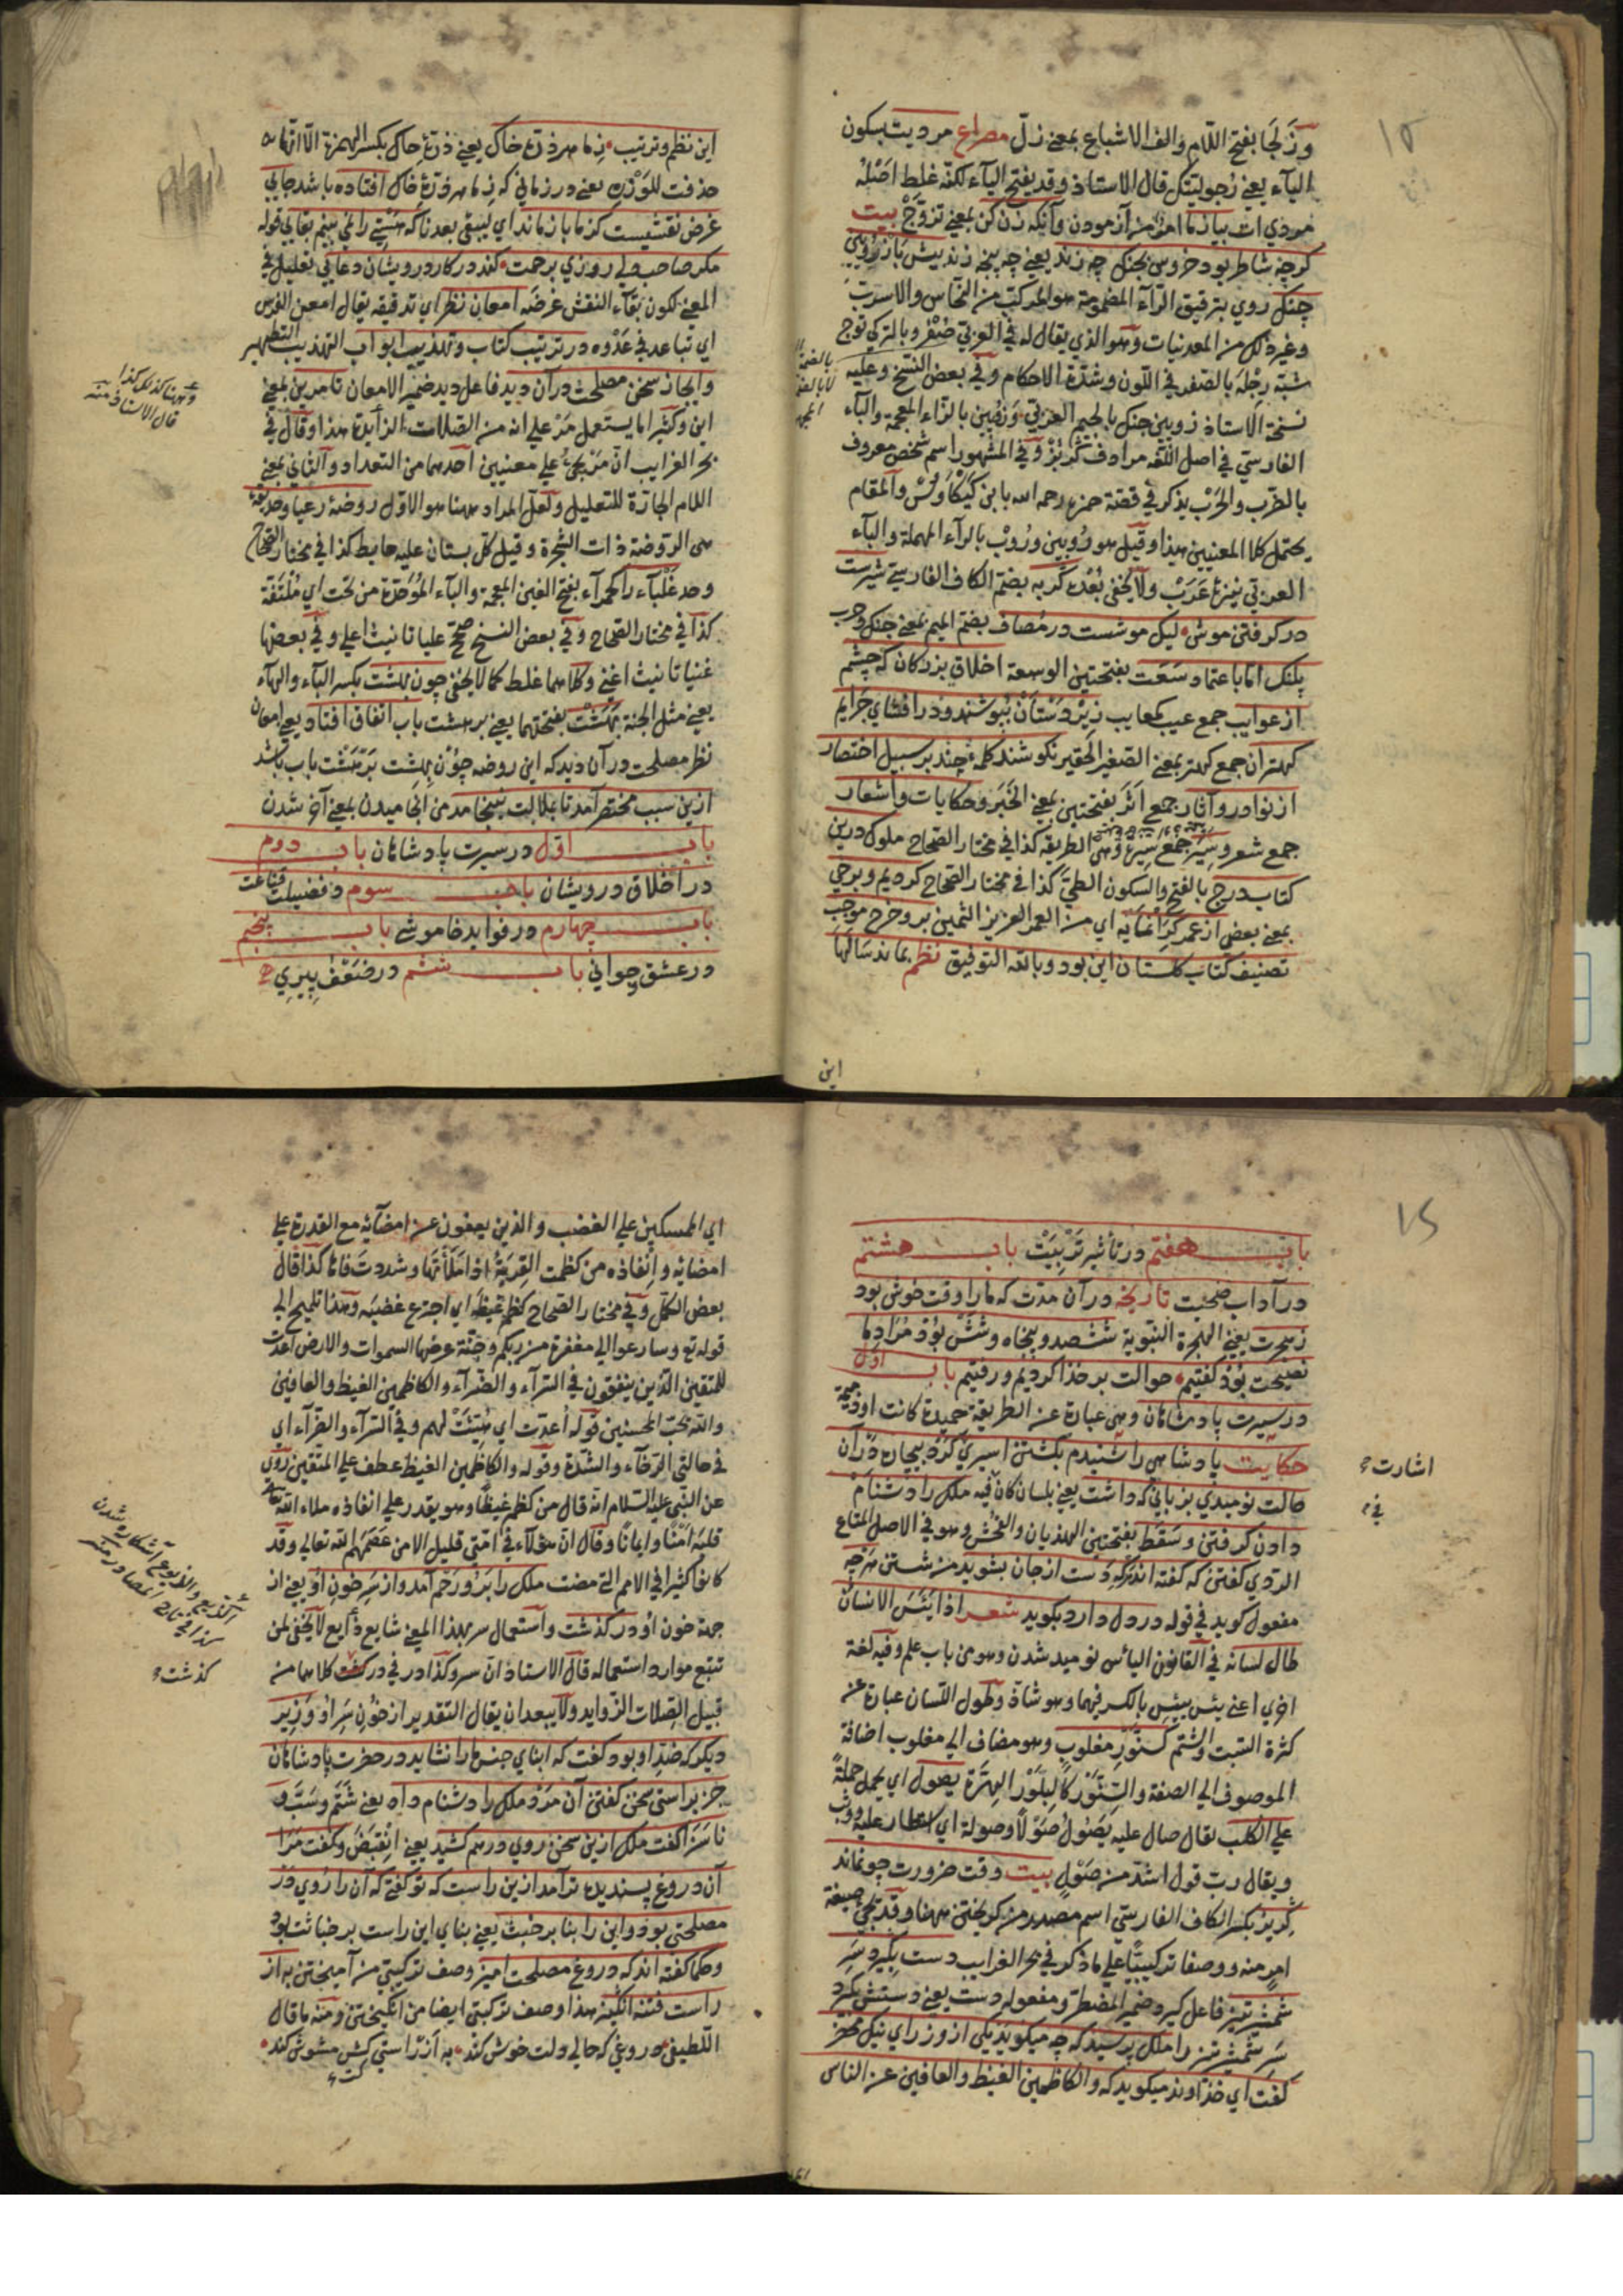 ١٥
وزَلجَا بفتح اللام والف الاشباع بمعنى زلّ مصراع مرديت بسكون
الياء يعني رجوليتك قال الاستاذ وقد يفتح الياء لكنه غلط اصله
مردي ات بيازما امر من آزمودن وآنكه زن كن بمعنى تزوّج بيت
كرچه شاطر بود خروس بجنك چه زند يعني چه پنجه زند پيش باز رويين
چنك روي بترقيق الراء المضمومة هو المركب من النحاس والاسرب
وغير ذلك من المعدنيات وهو الذي يقال له في العربي صفر وبالتركي توج
شبّه رجله بالصفر في اللون وشدة الاحكام وفي بعض النسخ وعليه
نسخة الاستاذ زوبين جنك بالجيم العربي وزوبين بالزاء المعجمة والباء
الفارسي في اصل اللغة مرادف وفي المشهور اسم شخص معروف
بالضرب والحرب يذكر في قصة حمزه رحمه الله بابن كيكاوس والمقام
يحتمل كلا المعنيين هذا وقيل هو روبين وروب بالراء المهملة والباء
العربي ولا يخفى بعده كربه بضم الكاف الفارسي شيرست
در كرفتن موش ليك موشست در مصاف بضم الميم بمعنى جنك وحرب
پلنك اما باعتماد سعت بفتحتين الوسعة اخلاق بزركان كه چشم
از عوايب جمع عيب كمعايب زيردستان بپوشند ودر افشاي جرايم
كهتران جمع كهتر بمعنى الصغير الحقير نكوشند كلمه چند بر سبيل اختصار
از نوادر وآثار جمع اثر بفتحتين بمعنى الخبر وحكايات واشعار
جمع شعر وسير جمع سيرة وهي الطريقه كذا في مختار الصحاح ملوك درين
كتاب درج بالفتح والسكون الطيّ كذا في مختار الصحاح كرديم وبرخي
بمعنى بعض از عمر كرانمايه اي من العمر العزيز الثمين برو خرج موجب
تصنيف كتاب كلستان اين بود وبالله التوفيق نظم بماند سالها
اين
اين نظم وترتيب زما هر ذرة خاك يعني ذرة خاك بكسر الهمزة الا انها
حذفت للوزن يعني در زماني كه زما هر ذرة خاك افتاده باشد جايي
غرض نقشيست كزما باز ماند اي ليبقى بعدنا كه هستي را نمي بينم بقايي قوله
مكر صاحب دلي روزي برحمت كند در كار درويشان دعايي تعليل في
المعنى لكون بقاء النقش غرضه امعان نظر اي تدقيقه يقال امعن الفرس
اي تباعد في عدوه در ترتيب كتاب وتهذيب ابواب التهذيب التطهير
وايجاز سخن مصلحت درآن ديد فاعل ديد ضمير الامعان تا مرين بمعنى
اين وكثيرا ما يستعمل مر على انه من الصلات الزائدة هذا وقال في
بحر الغرايب ان مر يجيء على معنيين احدهما من التعداد والثاني بمعنى
اللام الجارة للتعليل ولعل المراد ههنا هو الاول روضة رعنا وحديقة
هي الروضة ذات الشجرة وقيل كل بستان عليه حايط كذا في مختار الصحاح
وحد غلباء را كحمراء بفتح الغين المعجمة والباء الموحدة من تحت اي ملتفة
كذا في مختار الصحاح وفي بعض النسخ صح عليا تانيث اعلي وفي بعضها
غنيا تانيث اغنى وكلاهما غلط كما لا يخفى چون بهشت بكسر الباء والهاء
يعني مثل الجنة بهشت بفتحتهما يعني بر هشت باب اتفاق افتاد يعني امعان
نظر مصلحت در آن ديد كه اين روضه چون بهشت بر هشت باب باشد
ازين سبب مختصر آمد تا بملالت نينجامد من انجاميدن بمعنى آخر شدن
باب اول در سيرت پادشاهان باب دوم
در اخلاق درويشان باب سوم در فضيلت قناعت
باب چهارم در فوايد خاموشي باب پنجم
در عشق وجواني باب ششم در ضعف پيري
وههنا كذلك كذا
قال الاستاذ منه
باب هفتم در تاثير تربيت باب هشتم
در آداب صحبت تاريخه در آن مدت كه مارا وقت خوش بود
زهجرت يعني الهجرة النبوية ششصد وپنجاه وشش بود مراد ما
نصيحت بود كفتيم حوالت بر خدا كرديم ورفتيم باب اول
در سيرت پادشاهان وهي عبارة عن الطريقة حميدة كانت او ذميمة
حكايت پادشاهي را شنيدم بكشتن اسيري كرد بيچاره در آن
حالت نوميدي بزباني كه داشت يعني بلسان كان فيه ملك را دشنام
دادن كرفتن وسقط بفتحتين الهذيان والفحش وهو في الاصل المتاع
الردي كفتن كه كفته اند هركه دست از جان بشويد من شستن هرچه
مفعول كويد في قوله در دل دارد بكويد شعر اذا يئس الانسان
طال لسانه في القانون الياس نوميد شدن وهو من باب علم وفيه لغة
اخري اعني يئس ييئس بالكسر فيهما وهو شاذ وطول اللسان عبارة عن
كثرة السب والشتم كسنور مغلوب وهو مضاف الى مغلوب اضافة
الموصوف الى الصفة والسنور كالبلور الهرة يصول اي يحمل حملة
على الكلب يقال صال عليه يصول صولا وصولة اي استطار عليه ووثب
ويقال رب قول اشد من صول بيت وقت ضرورت چو نماند
كريز بكسر الكاف الفارسي اسم مصدر من كريختن ههنا وقد يجيء صيغة
امر منه ووصفا تركيبيا على ما ذكر في بحر الغرايب دست بكيرد سر
شمشير تيز فاعل كيرد ضمير المضطر ومفعوله دست يعني دستش بكيرد
سر شمشير تيز را ملك پرسيد كه چه ميكويد يكى از وزراي نيك محضر
كفت اي خداوند ميكويد كه والكاظمين الغيظ والعافين عن الناس
اشارت
في
اي الممسكين على الغضب والذين يعفون عن امضائه مع القدرة على
امضائه وانفاذه من كظمت القربة اذا ملأتها وشددت فاها كذا قال
بعض الكمل وفي مختار الصحاح كظم غيظه اي اجترع غضبه وهذا تلميح الى
قوله تع وسارعوا الى مغفرة من ربكم وجنة عرضها السموات والارض اعدت
للمتقين الذين ينفقون في السراء والضراء والكاظمين الغيظ والعافين
والله يحب المحسنين قوله اعدت اي هيئت لهم وفي السراء والضراء اي
في حالتي الرخاء والشدة وقوله والكاظمين الغيظ عطف على المتقين روي
عن النبي عليه السلام انه قال من كظم غيظا وهو يقدر على انفاذه ملاء الله
قلبه امنا وايمانا وقال ان هؤلاء في امتي قليل الا من عصمهم الله تعالى وقد
كانوا كثيرا في الامم التي مضت ملك را برو رحم آمد واز سر خون او يعني از
جهة خون او در كذشت واستعمال سر بهذا المعنى شايع ذايع لا يخفى لمن
تتبع موارد استعماله قال الاستاذ ان سر وكذا در في در كذشت كلاهما من
قبيل الصلات الزوايد ولا يبعد ان يقال التقدير از خون سر او وزير
ديكر كه ضد او بود كفت كه ابناي جنس مارا نشايد در حضرت پادشاهان
جز براستي سخن كفتن آن مرد ملك را دشنام داد يعني شتم وسب و
ناسزا كفت ملك ازين سخن روي درهم كشيد يعني انقبض وكفت مرا
آن دروغ پسنديده تر آمد ازين راست كه تو كفتي كه آن را روي در
مصلحتي بود واين را بنا بر خبث يعني بناي اين راست بر خباثت بود
وحكما كفته اند كه دروغ مصلحت آميز وصف تركيبي من آميختن به از
راست فتنه انكيز هذا وصف تركيبي ايضا من انكيختن ومنه ما قال
اللطيفي دروغي كه حالي دلت خوش كند به از راستي كش مشوش كند
كذشت